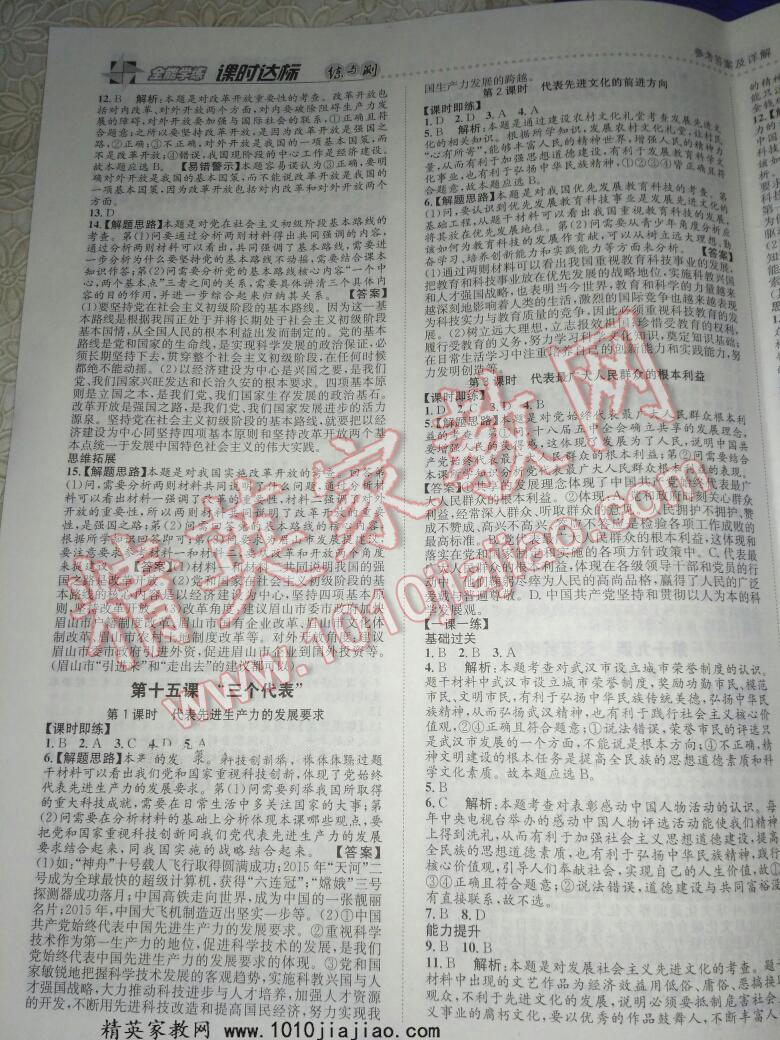 全能学练 课时达标 练与测
参考答案及详解
12. B 解析:本题是对改革开放重要性的考查。改革开放也
包括对内改革、对外开放两个方面,对内要破除阻碍生产力发
展的障碍,对外开放要加强与国际社会的联系,①正确且符
合题意;之所以要坚持改革开放,是因为改革开放是强国之
路,②正确;③不正确,对外开放是我国的一项基本国策,而
不是改革开放;④错误,我国现阶段的中心工作是经济建设。
故本题应选B。【易错警示】本题容易误认为③正确,要明
确对外开放是我国的基本国策,而不能说改革开放是我国的
一项基本国策,因为改革开放也包括对内改革和对外开放两个
方面。
13. D
14.【解题思路】本题是对党在社会主义初级阶段基本路线的
考查。第(1)问要通过分析两则材料得出共同强调的内容,
通过分析两则材料可以看出,共同强调了基本路线,需要进
一步分析为什么要坚持党的基本路线不动摇,需要结合课本
知识作答;第(2)问需要分析党的基本路线核心内容“一个中
心,两个基本点”三者之间的关系,需要具体讲清三个具体内
容的目的作用,并进一步综合起来归纳其关系。【答案】
(1)要坚持党在社会主义初级阶段的基本路线。因为这一基
本路线是根据我国正处于并将长期处于社会主义初级阶段
基本国情,从全国人民的根本利益出发而制定的。党的基本
路线是党和国家的生命线,是实现科学发展的政治保证,必
须长期坚持下去,贯穿整个社会主义初级阶段,在任何时候
都绝不能动摇。(2)以经济建设为中心是兴国之要,是我们
党、我们国家兴旺发达和长治久安的根本要求。四项基本原
则是立国之本,是我们党、我们国家生存发展的政治基石。
改革开放是强国之路,是我们党、我们国家发展进步的活力
源泉。坚持党在社会主义初级阶段的基本路线,就要把以经
济建设为中心同坚持四项基本原则和坚持改革开放两个基
本点统一于发展中国特色社会主义的伟大实践。
思维拓展
15.【解题思路】本题是对我国实施改革开放的考查。回答第
(1)问,需要分析两则材料共同
材料可以看出材料一强调了改革的重要性,材料二强调了对外开
放的重要性,所以两则材料共同说明了改革开放的重要
性,是强国之路;第(2)问
根据所学
要注意要从材料一和材料二
来谈
国之路即改革开放。(2)党在社会主义初级阶段的基本
路线的核心内容:以经济建设为中心,坚持四项基本原
则,坚持改革开放。(3)改革角度:建议眉山市委市政府
制改革、眉山市农村土地制度改革等。对外开放角度:建议
眉山市委市政府引进外资,促进眉山市企业到国外投资等。
(眉山市“引进来”和“走出去”的建议都可以)
第十五课 “三个代表”
第1课时 代表先进生产力的发展要求
【课时即练】
1. B 2. A 3. C 4. D 5. A
6.【解题思路】
干材料可以看出我们党和国家重视科技创新,体现了党始终
代表先进生产力的发展要求。第(1)问需要列举我国所取得
的重大科技成就,需要在日常生活中多关注国家的大事;第
(2)问需要在分析材料的基础上分析体现本课哪些观点,要
把党和国家重视科技创新同我们党代表先进生产力的发展
要求结合起来,同我国实施的战略结合起来。【答案】
(1)如:“神舟”十号载人飞行取得圆满成功;2015年“天河”二
号成为全球最快的超级计算机,获得“六连冠”;“嫦娥”三号
探测器成功落月;中国高铁走向世界,成为中国的一张靓丽
名片;2015年,中国大飞机制造迈出坚实一步等。(2)①中国
共产党始终代表中国先进生产力的发展要求。②重视科学
技术作为第一生产力的地位,促进科学技术的发展,是我们
党始终代表中国先进生产力的发展要求的体现。③党和国
家敏锐地把握科学技术发展的客观趋势,实施科教兴国与人
才强国战略,大力推动科技进步与人才培养,加强人才资源
的开发,不断用先进科技改造和提高国民经济,努力实现我
国生产力发展的跨越。
第2课时 代表先进文化的前进方向
【课时即练】
1. D 2. D 3. A 4. A
5. B 解析:本题是通过建设农村文化礼堂考查发展先进文
化的相关知识。根据所学知识,发展农村文化礼堂,让村民
“心有所寄”,能够丰富人民的精神世界,增强人民的精神力
量,从而有利于加强思想道德建设,有利于发展教育科学文
化事业,也有利于弘扬中华民族精神,①②③④皆正确且符
合题意,故本题应选B。
6.【解题思路】本题是对我国优先发展教育科技的考查。第
(1)问,要认识到优先发展教育科技事业是发展先进文化的
基础工程,从题干材料可以看出我国重视教育科技的发展,
将其放在优先发展地位。第(2)问需要从青少年角度分析应
该如何为教育科技的发展作贡献,可以从树立远大理想,勤
奋学习,培养创新能力和实践能力等方面来分析。【答案】
(1)通过两则材料可以看出我国重视教育科技事业的发展,
把教育和科技事业放在优先发展的战略地位,实施科教兴国
和人才强国战略,也表明当今世界,教育和科学的力量越来
越深刻地影响着人类的生活,激烈的国际竞争也越来越表现
为科技实力与教育质量的竞争,因此必须重视科技教育的发
展。(2)树立远大理想,立志报效祖国;珍惜受教育的权利,
履行受教育的义务,努力学习科学文化知识,奠定知识基础;
在日常生活学习中注重培养自己的创新能力和实践能力,努
力发明创造。
第3课时 代表最广大人民群众的根本利益
【课时即练】
1. D 3. D 4. B
5.【解题思路】本题是对党始终代表最广大人民群众根本利
十八届五中全会确立共享的发展理念,
这体现了发展为了人民,说明中国共
产党始终代表最广大人民群众的根本利益;第(2)问需要结合
最广大人民群众的根本利益的表现。
【答案】
发展理念体现了中国共产党始终代表最广
大人民群众的根本利益。②体现了党和政府时刻关心群众
利益,经常深入群众、听取群众的意见,把人民拥护不拥护、赞
成不赞成、高兴不高兴、答应不答应作为检验各项工作成败的
最高标准。
落实在党和国家制定实施的各项方针政策中。C.代表最
广大人民群众的根本利益,体现在各级领导干部和党员的行
动中,他们鞠躬尽瘁为人民的高尚品格,赢得了人民的广泛
爱戴与普遍尊敬。D.中国共产党坚持和贯彻以人为本的科
学发展观。
【一课一练】
基础过关
1. B 2. B 3. A
4. B 解析:本题考查对武汉市设立城市荣誉制度的认识。
题干材料中武汉市设立城市荣誉制度,奖励功勋市民、模范
市民、文明市民,有利于弘扬中华传统美德,弘扬中华民族
精神,从而弘扬武汉精神,也有利于践行社会主义核心价
值观,②③正确且符合题意;①说法错误,荣誉市民的评选只
是武汉市发展的一个方面,不能说是根本方向;④不正确,精
神文明建设的根本任务是提高全民族的思想道德素质和科
学文化素质。故本题应选B。
5. B
6. C 解析:本题考查对表彰感动中国人物活动的认识。每
年中央电视台举办的感动中国人物评选活动能使我们精神
上得到洗礼,从而有利于加强社会主义思想道德建设,提高
全民族的思想道德素质,也有利于弘扬中华民族精神,践行
核心价值观,引导人们奉献社会,实现自己的人生价值,故①
③④正确且符合题意;②说法错误,道德建设与共同富裕没
有直接联系,故不选。
7. B 8. D
能力提升
9. B 10. B
11. B 解析:本题是对发展社会主义先进文化的考查。题干
材料中出现的文艺作品为经济效益用低俗、庸俗、恶搞接取
观众,不利于先进文化的发展,说明必须要抵制危害社会主
义事业的腐朽文化,要以优秀的作品鼓舞人,不断丰富人
精英家教网
www.1010jiajiao.com
精英家教网 www.1010jiajiao.com